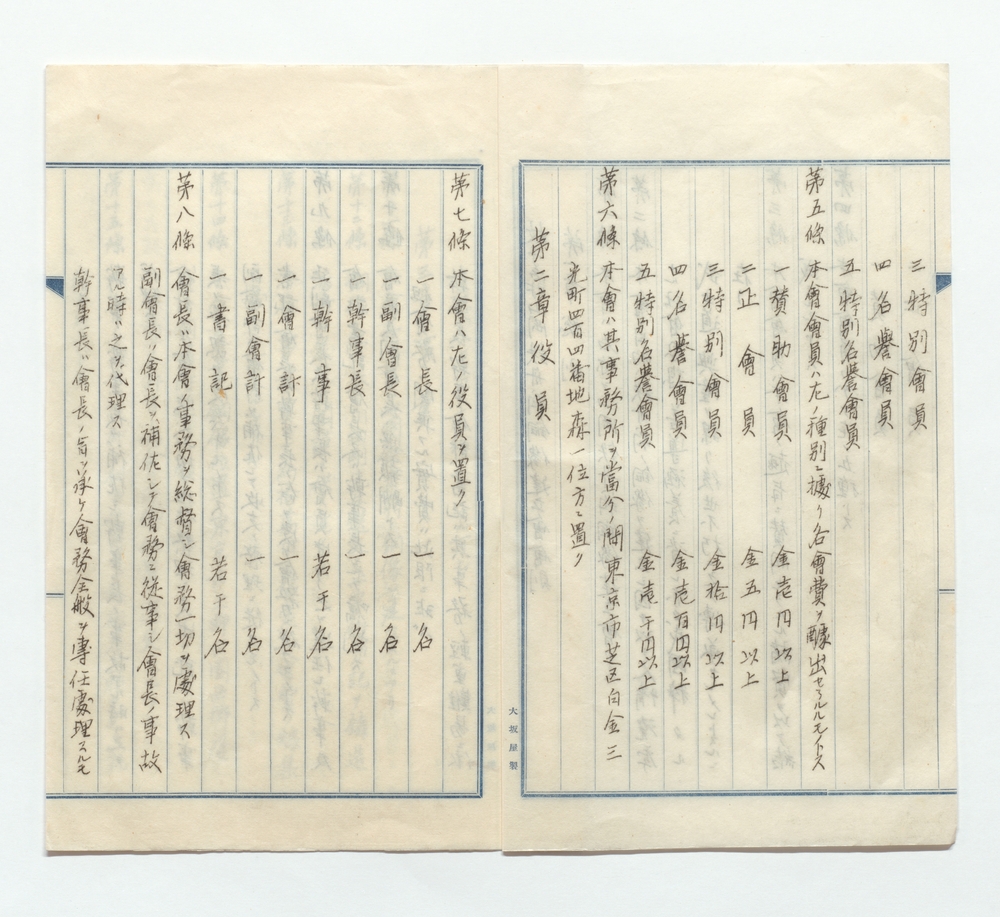 三 特別會員
四 名譽會員
五 特別名譽會員
第五條 本會會員ハ左ノ種別ニ據リ名會費ヲ醵出セラルルモノトス
一 賛助會員 金壱円以上
二 正會員 金五円以上
三 特別會員 金拾円以上
四 名譽會員 金壱百円以上
五 特別名譽會員 金壱千円以上
第六條 本會ハ其事務所ヲ當分ノ間東京市芝区白金三
光町四百四番地森一位方ニ置ク
第二章 役員
大坂屋製
第七條 本會ハ左ノ役員ヲ置ク
一 會長 一名
一 副會長 一名
一 幹事長 一名
一 幹事 若干名
一 會計 一名
一 副會計 一名
一 書記 若干名
第八條 會長ハ本會ノ事務ヲ総督シ會務一切ヲ處理ス
副會長ハ會長ヲ補佐シテ會務ニ従事シ會長ノ事故
アル時ハ之ヲ代理ス
幹事長ハ會長ノ旨ヲ承ケ會務全般ヲ專任處理スルモ